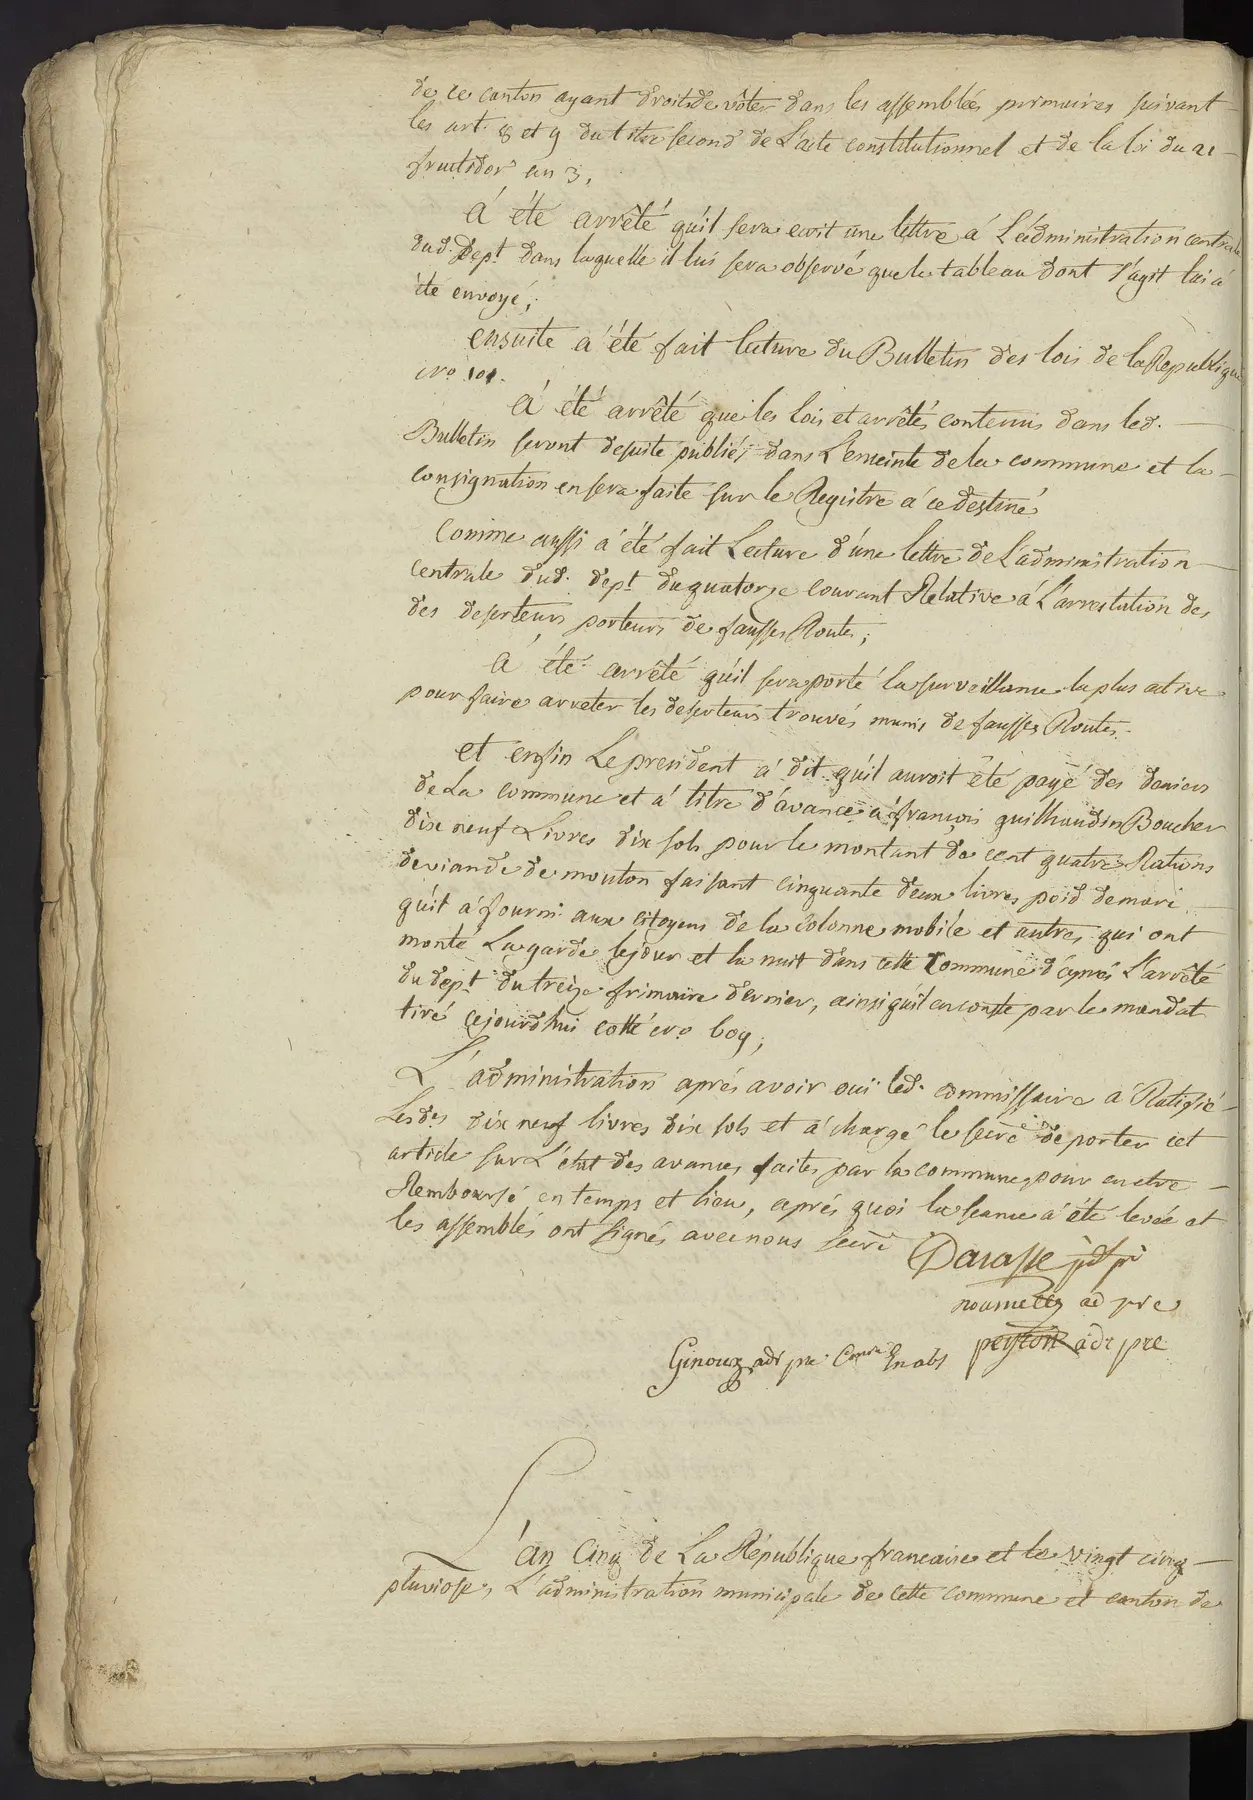 de ce canton ayant droit de vôter dans les assemblées primaires suivant
les art. 8 et 9 du titre second de L'acte constitutionnel et de la loi du 21
fructidor an 3,
à été arrêté qu'il sera ecrit une lettre á L'administration centrale
dud. Dept. dans laquelle il lui sera observé que le tableau dont s'agit lui á
été envoyé;
ensuite a été fait lecture du Bulletin des lois de la Republique
nro. 101.
á été arrêté que les lois et arrêtés contenus dans led.
Bulletin seront desuite publiés dans L'enceinte de la commune et la
consignation en sera faite sur le Registre á ce destiné
Comme aussi á été fait Lecture d'une lettre de L'administration
centrale dud. dept. du quatorze courant Relative á L'arrestation des
des deserteurs porteurs de fausses Routes;
á été arrêté qu'il sera porté la surveillance la plus active
pour faire arreter les deserteurs trouvés munis de fausses Routes.
et enfin Le president á dit qu'il auroit été payé des deniers
de La commune et á titre d'avance á françois guilhaudin Boucher
dix neuf Livres dix sols pour le montant de cent quatre Rations
de viande de mouton faisant cinquante deux livres poid de marc
qu'il á fourni aux citoyens de la colonne mobile et autres qui ont
monté La garde le jour et la nuit dans cette Commune d'après L'arrêté
du dept. du treize frimaire dernier, ainsi qu'il en conste par le mandat
tiré cejourd'hui cotté nro. 609;
L'administration aprés avoir ouï led. commissaire á Ratifié
Lesdes. dix neuf livres dix sols et á chargé le secre. de porter cet
article sur L'état des avances faites par la commune, pour en etre
Remboursé en temps et lieu, aprés quoi la seance á été levée et
les assemblés ont signés avec nous secre.
Darasse pdt
ad pre
peyron adt pre
Ginoux adt pre.
L'an Cinq de La République francaise et le vingt cinq
pluviose, L'administration municipale de cette commune et canton de